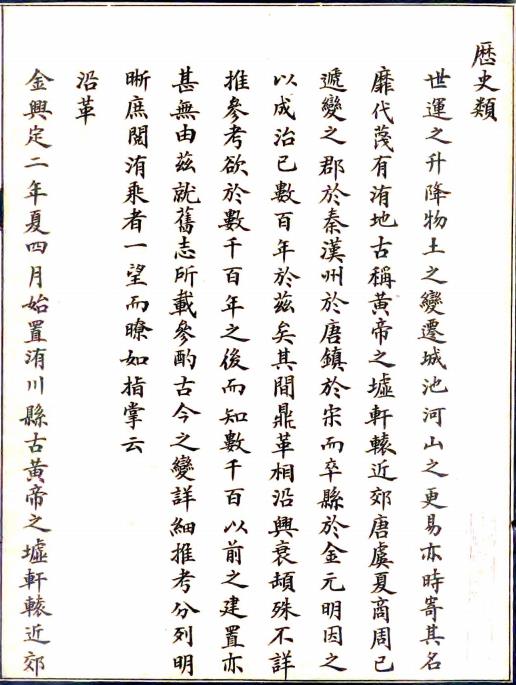 歷史類
世運之升降物土之變遷城池河山之更易亦時寄其名
靡代蔑有洧地古稱黃帝之墟軒轅近郊唐虞夏商周已
遞變之郡於秦漢州於唐鎮於宋而卒縣於金元明因之
以成治已數百年於茲矣其間鼎革相沿興衰頡殊不詳
推參考欲於數千百年之後而知數千百以前之建置亦
甚無由茲就舊志所載參酌古今之變詳細推考分列明
晰庶閱洧乘者一望而瞭如指掌云
沿革
金興定二年夏四月始置洧川縣古黃帝之墟軒轅近郊